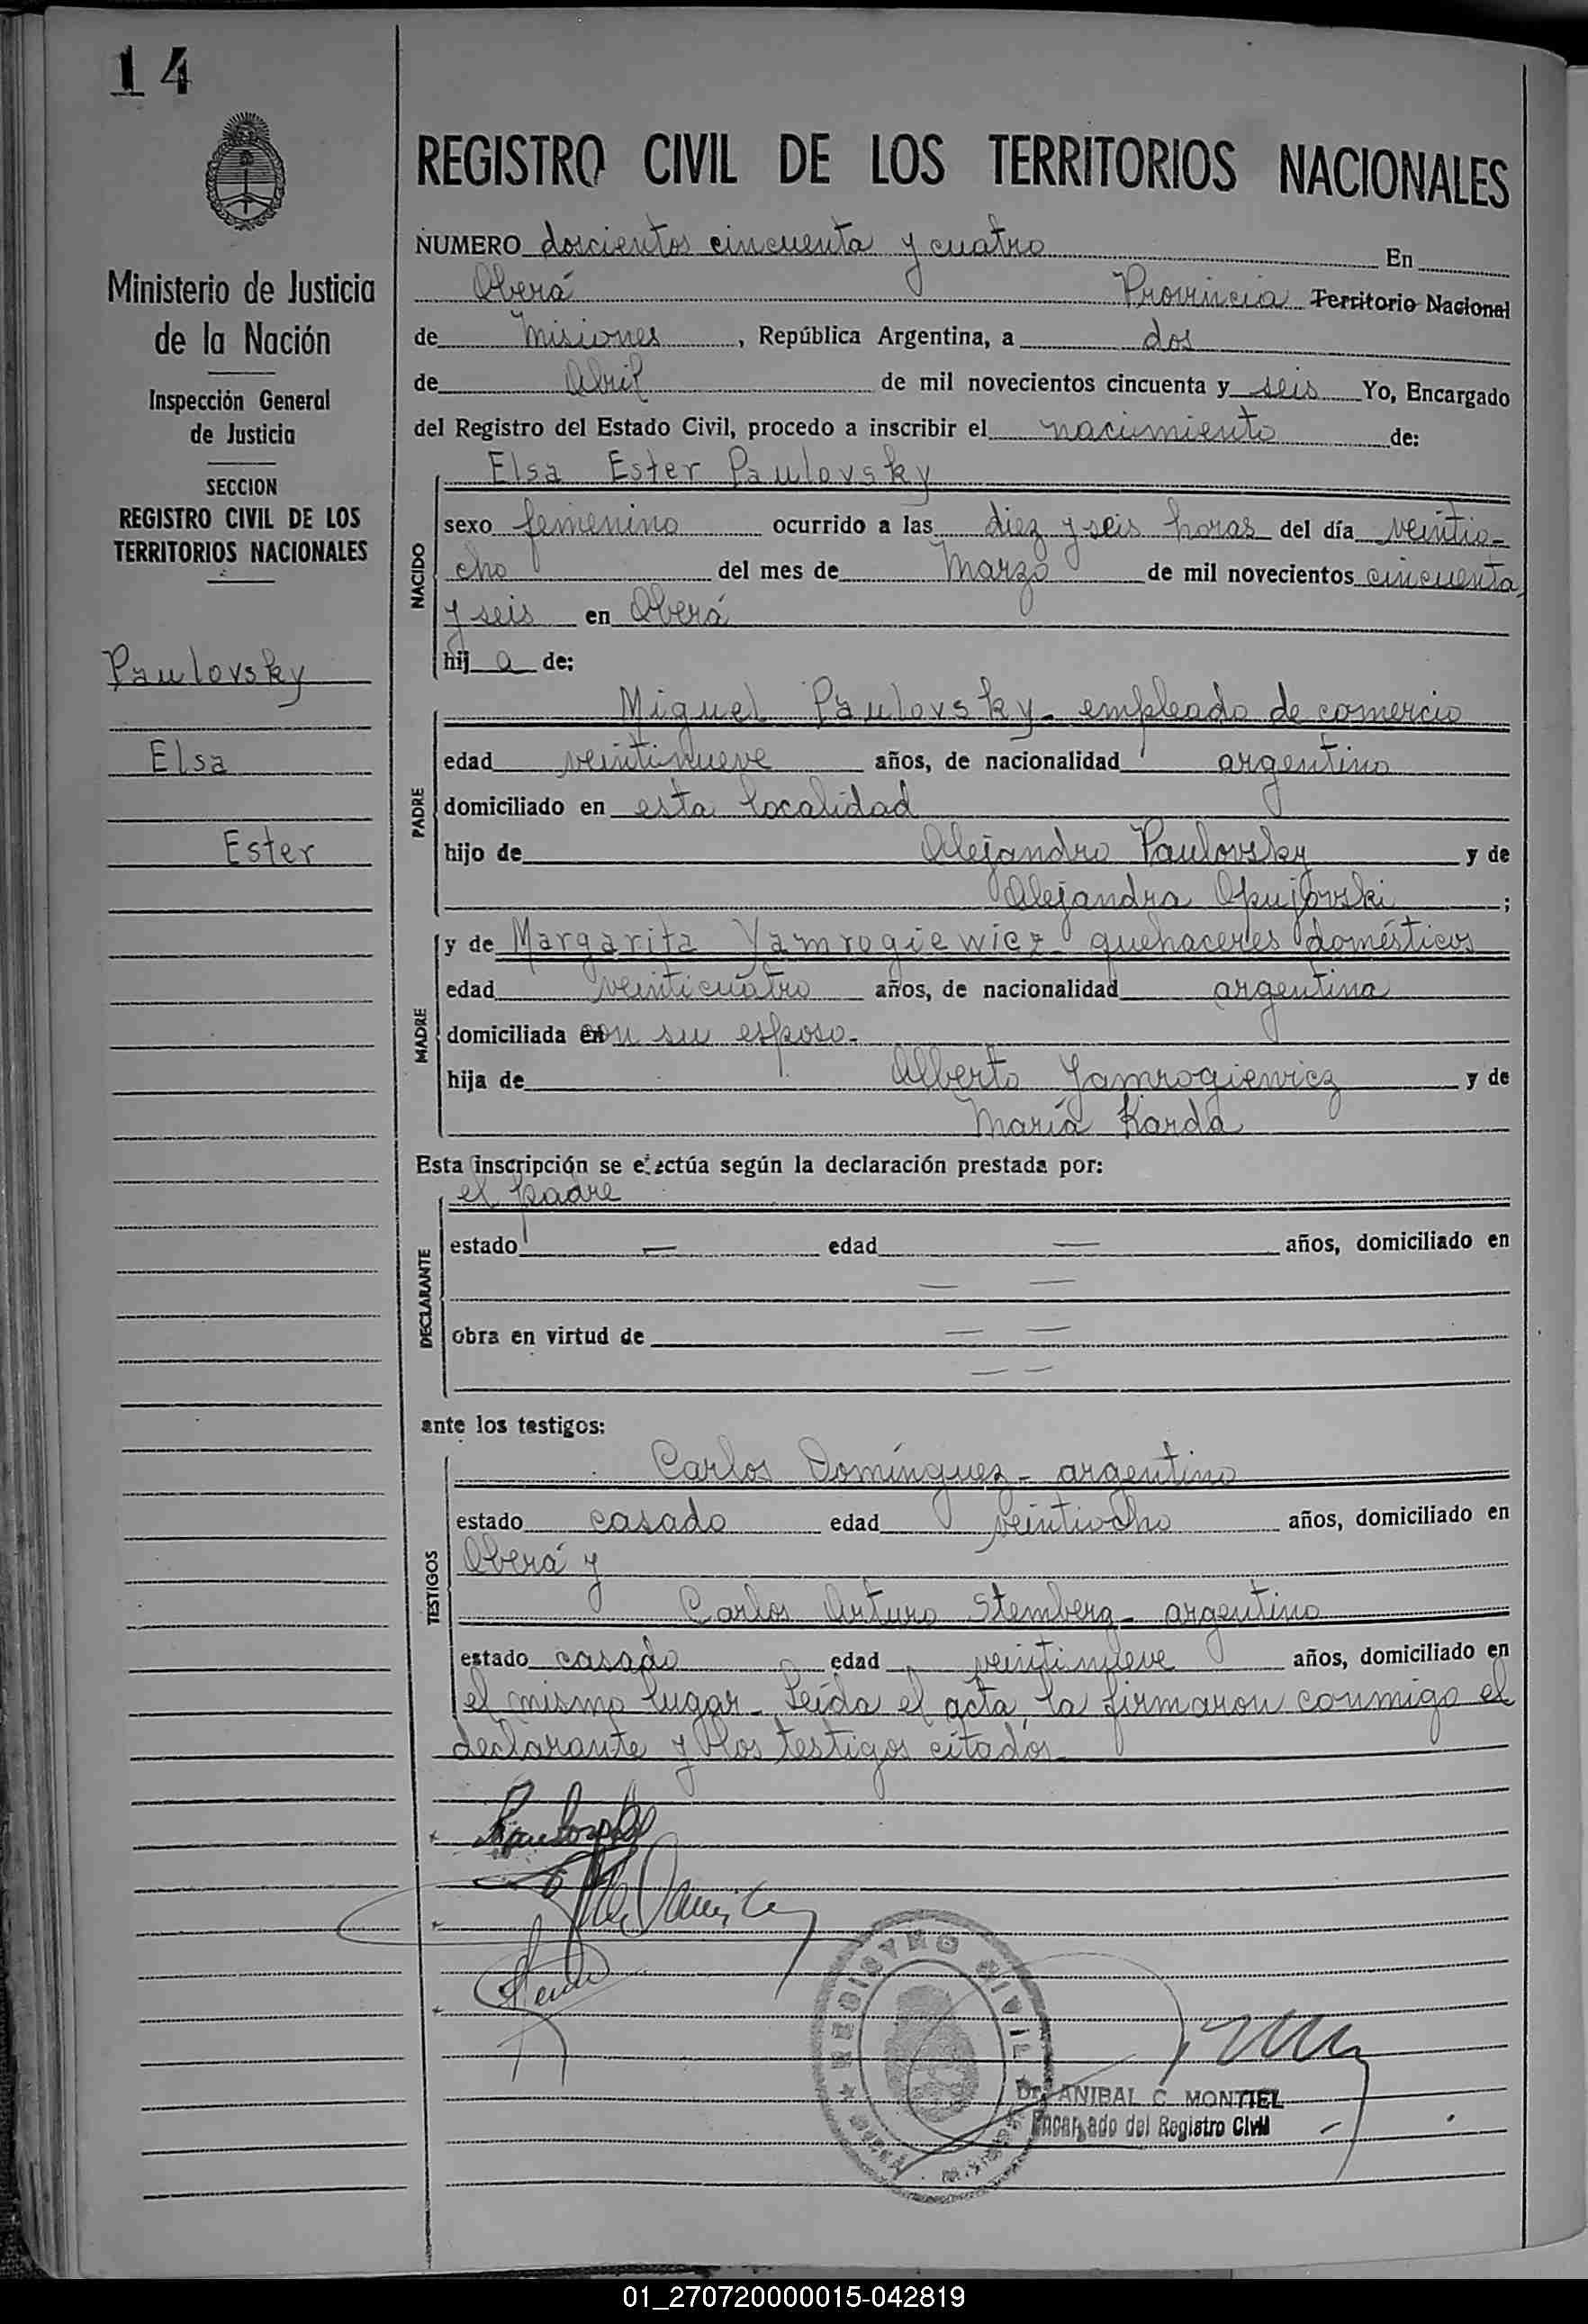 14
Ministerio de Justicia
de la Nación
Inspección General
de Justicia
SECCION
REGISTRO CIVIL DE LOS
TERRITORIOS NACIONALES
Paulovsky
Elsa
Ester
REGISTRO CIVIL DE LOS TERRITORIOS NACIONALES
NUMERO doscientos cincuenta y cuatro En
Oberá Provincia Territorio Nacional
de Misiones, República Argentina, a dos
de Abril de mil novecientos cincuenta y seis Yo, Encargado
del Registro del Estado Civil, procedo a inscribir el nacimiento de:
NACIDO
Elsa Ester Paulovsky
sexo femenino ocurrido a las diez y seis horas del día veintio-
cho del mes de Marzo de mil novecientos cincuenta
y seis en Oberá
hija de:
PADRE
Miguel Paulovsky - empleado de comercio
edad veintinueve años, de nacionalidad argentino
domiciliado en esta localidad
hijo de Alejandro Paulovsky y de
Alejandra ;
MADRE
y de Margarita Yamrogiewicz - quehaceres domésticos
edad veinticuatro años, de nacionalidad argentina
domiciliada con su esposo.
hija de Alberto Yamrogiewicz y de
María Karda
Esta inscripción se efectúa según la declaración prestada por:
DECLARANTE
el padre
estado — edad — años, domiciliado en
— —
obra en virtud de — —
— —
ante los testigos:
TESTIGOS
Carlos Domínguez - argentino
estado casado edad veintiocho años, domiciliado en
Oberá y
Carlos Arturo Stemberg - argentino
estado casado edad veintinueve años, domiciliado en
el mismo lugar - Leída el acta, la firmaron conmigo el
declarante y los testigos citados.
REGISTRO CIVIL
Dr. ANIBAL C. MONTIEL
Encargado del Registro Civil
01_270720000015-042819